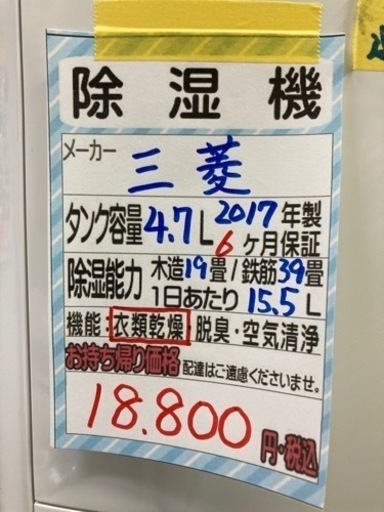 除湿機
メーカー 三菱
タンク容量 4.7L 2017年製
6ヶ月保証
除湿能力 木造19畳/鉄筋39畳
1日あたり 15.5L
機能:衣類乾燥・脱臭・空気清浄
お持ち帰り価格 配達はご遠慮くださいませ。
18.800
円・税込